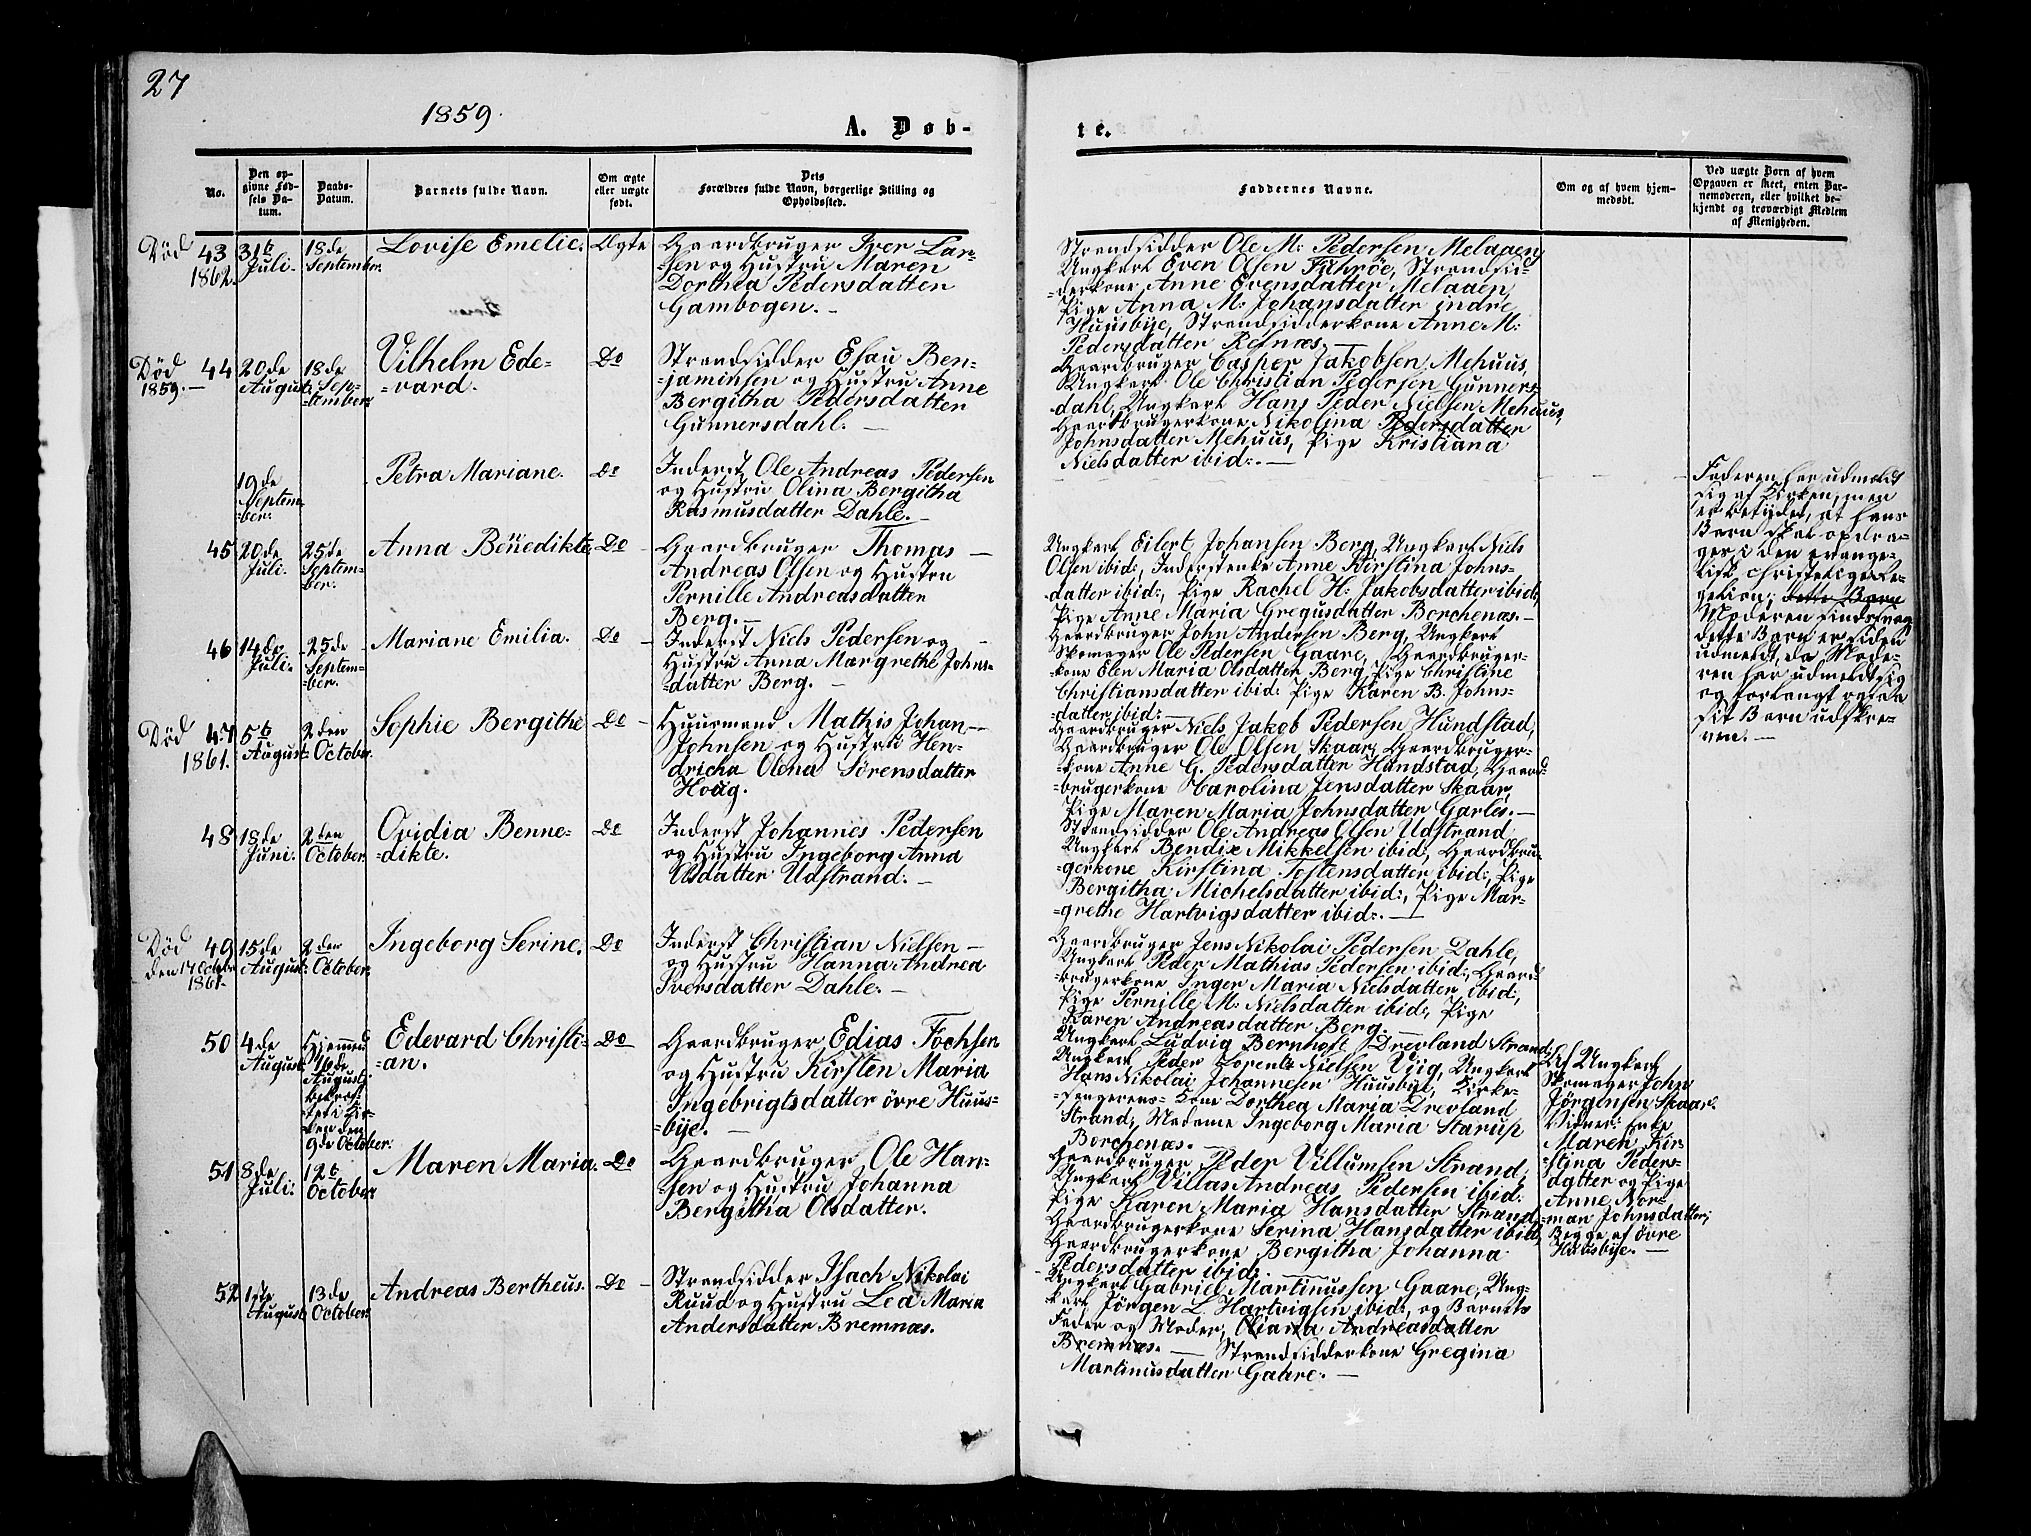 27
1859.
A. Døb-
te.
No.
Den op-
givne Fød-
sels Da-
tum.
Daabs-
Datum.
Barnets fulde Navn.
Om ægte
eller uægte
født.
Dets
Forældres fulde Navn, borgerlige Stilling og
Opholdssted.
Faddernes Navne.
Om og af hvem hjem-
medøbt.
Ved uægte Børn af hvem
Opgaven er skeet, enten Bar-
nemoderen, eller hvilket be-
kjendt og troværdigt Medlem
af Menigheden.
Død 43
1862.
31te
Juli.
18de
September.
Lovise Emelie.
Ægte
Gaardbruger Iver Lar-
=sen og Hustru Maren
Dorthea Pedersdatter
Gambogen. -
Strandsidder Ole M: Pedersen Melaaen,
Ungkarl Even Olsen Fuhrøe, Strandsid-
=derkone Anne Evensdatter Melaaen,
Pige Anna M: Johansdatter indre
Huusbÿe, Strandsidderkone Anne M:
Pedersdatter Refnæs. -
Død 44
1859. -
20de
August.
18de
Sep-
=tember.
Vilhelm Ede-
=vard.
Do
Strandsidder Esau Ben-
=jaminsen og Hustru Anne
Bergitha Pedersdatter
Gunnersdahl. -
Gaardbruger Casper Jakobsen Mehuus,
Ungkarl Ole Christian Pedersen Gunners-
dahl, Ungkarl Hans Peder Nielsen Mehuus,
Gaardbrugerkone Nikolina Pedersdatter
Johnsdatter Mehuus, Pige Kristiana
Nielsdatter ibid:. -
19de
Septem-
=ber.
Petra Mariane.
Do
Inderst Ole Andreas Pedersen
og Hustru Olina Bergitha
Rasmusdatter Dahle. -
Faderen har udmeldt
sig af Kirken, men
er betydet, at hans
Barn skal opdra-
ges i den evange-
lisk christelige Re-
gelion; dette Barn
Moderen
dette Barn er siden
udmeldt, da Mode-
ren har udmeldt sig
og forlangt ogsaa
sit Barn udskre-
ven. -
45
20de
Juli.
25de
Septem-
ber.
Anna Benedikte.
Do
Gaardbruger Thomas -
Andreas Olsen og Hustru
Pernille Andreasdatter
Berg. -
Ungkarl Eilert Johansen Berg, Ungkarl Niels
Olsen ibid:, Inderstenke Anne Kirstina Johns-
datter ibid:, Pige Rachel H: Jakobsdatter ibid:,
Pige Anne Maria Gregusdatter Borchenæs. -
46
14de
Juli.
25de
Septem-
=ber.
Mariane Emilia.
Do
Inderst Niels Pedersen og
Hustru Anna Margrethe Johns-
=datter Berg. -
Gaardbruger John Andersen Berg, Ungkarl
Skomager Ole Pedersen Gaare, Gaardbruger-
=kone Elen Maria Olsdatter Berg, Pige Christine
Christiansdatter ibid: Pige Karen B. Johns-
=datter ibid: -
Død 47
1861.
5te
August.
2den
October.
Sophie Bergithe
Do
Huusmand Mathis Johan -
Johnsen og Hustru Hen-
dricha Olena Sørensdatter
Houg.
Gaardbruger Niels Jakob Pedersen Hundstad,
Gaardbruger Ole Olsen Skaar, Gaardbruger-
=kone Anne G. Pedersdatter Hundstad, Gaard-
=brugerkone Karolina Jensdatter Skaar,
Pige Maren Maria Johnsdatter Garles. -
48
18de
Juni.
2den
October.
Ovidia Benne-
=dikte.
Do
Inderst Johannes Pedersen
og Hustru Ingeborg Anna
Olsdatter Udstrand. -
Strandsidder Ole Andreas Olsen Udstrand,
Ungkarl Bendix Mikkelsen ibid, Gaardbru-
=gerkone Kirstina Tostensdatter ibid:, Pige
Bergitha Michelsdatter ibid:, Pige Mar-
=grethe Hartvigsdatter ibid:. -
Død 49
den 17 Octobr
1861.
15de
August.
2den
October.
Ingeborg Serine.
Do
Inderst Christian Nielsen -
og Hustru Hanna Andrea
Iversdatter Dahle. -
Gaardbruger Jens Nikolai Pedersen Dahle,
Ungkarl Peder Mathias Pedersen ibid:, Gaard-
=brugerkone Inger Maria Nielsdatter ibid:,
Pige Pernille M: Nielsdatter ibid:, Pige
Karen Andreasdatter Berg. -
50
4de
August.
Hjemmed
16de
August,
bekræf-
tet i Kir-
ken den
9de October.
Edevard Christi-
=an.
Do
Gaardbruger Edias Fochsen
og Hustru Kirsten Maria
Ingebrigtsdatter øvre Huus-
=bÿe. -
Ungkarl Ludvig Bernhoft Drevland Strand,
Ungkarl Peder Lorents Nielsen Vÿig, Ungkarl
Hans Nikolai Johannesen Huusbÿe, Kirke-
=sangerens Kone Dorthea Maria Drevland
Strand, Madame Ingeborg Maria Starup
Borchenæs. -
Af Ungkarl
Skomager John
Jørgensen Skaar.
Vidner: Enke
Maren Kir-
=stina Peders-
datter og Pige
Anne Nor-
=man Johnsdatter,
Begge af øvre
Huusbÿe. -
51
8de
Juli.
12te
October.
Maren Maria.
Do
Gaardbruger Ole Han-
=sen og Hustru Johanna
Bergitha Olsdatter.
Gaardbruger Peder Villumsen Strand,
Ungkarl Villas Andreas Pedersen ibid:
Pige Karen Maria Hansdatter Strand,
Gaardbrugerkone Serina Hansdatter ibid,
Gaardbrugerkone Bergitha Johanna
Pedersdatter ibid:
52
1ste
August.
13de
October.
Andreas Bertheus.
Do
Strandsidder Isach Nikolai
Ruud og Hustru Lea Maria
Andersdatter Bremnæs.
Ungkarl Gabriel Martinussen Gaare, Ung-
karl Jørgen L. Hartvigsen ibid:, og Barnets
Fader og Moder, Oliana Andreasdatter
Bremnæs. - Strandsidderkone Gregina
Martinusdatter Gaare. -